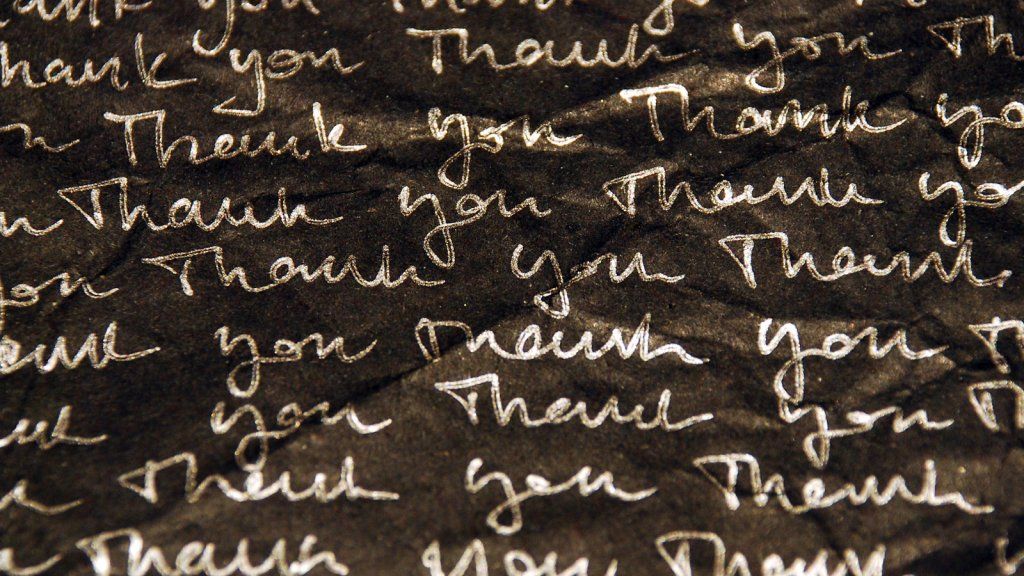 Thank you Thank yo
Thank you Thank you Th
n Thank you Thank yo
n Thank you Thank yo
you Thank you Thank
ank you Thank you T
nk you Thank you T
n Thank you Thank
Thank you Thank y